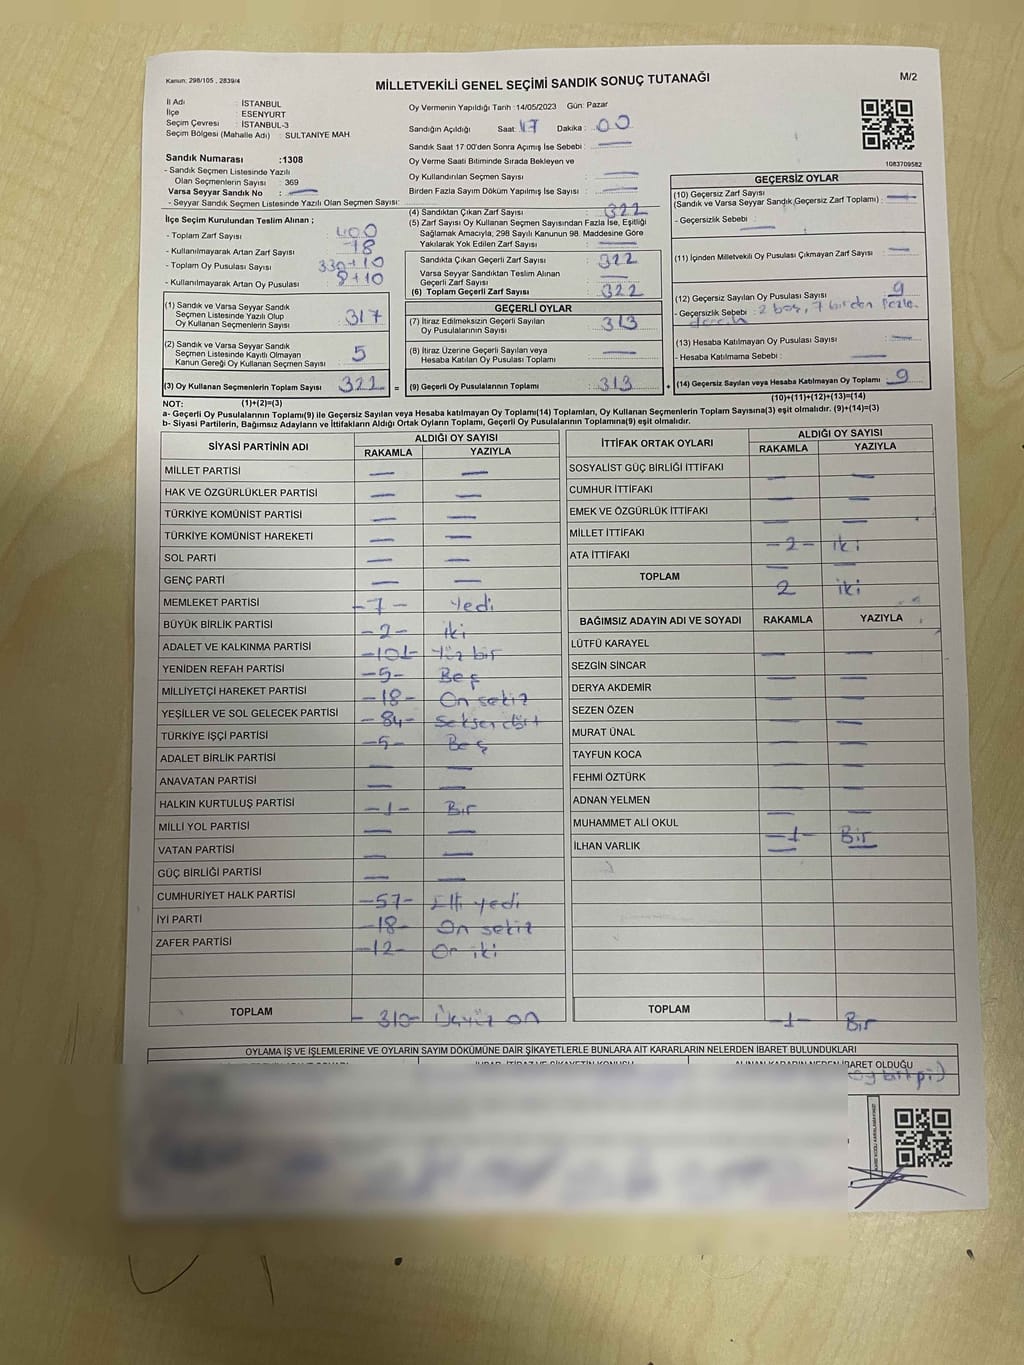 Kanun: 298/105 , 2839/4
MİLLETVEKİLİ GENEL SEÇİMİ SANDIK SONUÇ TUTANAĞI
M/2
İl Adı : İSTANBUL
İlçe : ESENYURT
Seçim Çevresi : İSTANBUL-3
Seçim Bölgesi (Mahalle Adı) : SULTANİYE MAH
Oy Vermenin Yapıldığı Tarih :14/05/2023 Gün: Pazar
Sandığın Açıldığı Saat: 17 Dakika : 00
Sandık Saat 17 00'den Sonra Açımış İse Sebebi :
Oy Verme Saati Bitiminde Sırada Bekleyen ve
Oy Kullandırılan Seçmen Sayısı :
Birden Fazla Sayım Döküm Yapılmış İse Sayısı :
1083709582
Sandık Numarası :1308
- Sandık Seçmen Listesinde Yazılı
Olan Seçmenlerin Sayısı : 369
Varsa Seyyar Sandık No : —
- Seyyar Sandık Seçmen Listesinde Yazılı Olan Seçmen Sayısı:
İlçe Seçim Kurulundan Teslim Alınan ;
- Toplam Zarf Sayısı : 400
- Kullanılmayarak Artan Zarf Sayısı : 78
- Toplam Oy Pusulası Sayısı : 330+10
- Kullanılmayarak Artan Oy Pusulası : 8+10
(1) Sandık ve Varsa Seyyar Sandık
Seçmen Listesinde Yazılı Olup
Oy Kullanan Seçmenlerin Sayısı : 317
(2) Sandık ve Varsa Seyyar Sandık
Seçmen Listesinde Kayıtlı Olmayan
Kanun Gereği Oy Kullanan Seçmen Sayısı : 5
(3) Oy Kullanan Seçmenlerin Toplam Sayısı : 322 =
(4) Sandıktan Çıkan Zarf Sayısı : 322
(5) Zarf Sayısı Oy Kullanan Seçmen Sayısından Fazla İse, Eşitliği
Sağlamak Amacıyla, 298 Sayılı Kanunun 98. Maddesine Göre
Yakılarak Yok Edilen Zarf Sayısı : —
Sandıkta Çıkan Geçerli Zarf Sayısı : 322
Varsa Seyyar Sandıktan Teslim Alınan
Geçerli Zarf Sayısı : —
(6) Toplam Geçerli Zarf Sayısı : 322
GEÇERLİ OYLAR
(7) İtiraz Edilmeksizin Geçerli Sayılan
Oy Pusulalarının Sayısı : 313
(8) İtiraz Üzerine Geçerli Sayılan veya
Hesaba Katılan Oy Pusulası Toplamı : —
(9) Geçerli Oy Pusulalarının Toplamı : 313 +
GEÇERSİZ OYLAR
(10) Geçersiz Zarf Sayısı
(Sandık ve Varsa Seyyar Sandık Geçersiz Zarf Toplamı) : —
- Geçersizlik Sebebi : —
(11) İçinden Milletvekili Oy Pusulası Çıkmayan Zarf Sayısı : —
(12) Geçersiz Sayılan Oy Pusulası Sayısı : 9
- Geçersizlik Sebebi : 2 boş, 7 birden fazla
(13) Hesaba Katılmayan Oy Pusulası Sayısı : —
- Hesaba Katılmama Sebebi : —
(14) Geçersiz Sayılan veya Hesaba Katılmayan Oy Toplamı : 9
NOT: (1)+(2)=(3) (10)+(11)+(12)+(13)=(14)
a- Geçerli Oy Pusulalarının Toplamı(9) ile Geçersiz Sayılan veya Hesaba katılmayan Oy Toplamı(14) Toplamları, Oy Kullanan Seçmenlerin Toplam Sayısına(3) eşit olmalıdır. (9)+(14)=(3)
b- Siyasi Partilerin, Bağımsız Adayların ve İttifakların Aldığı Ortak Oyların Toplamı, Geçerli Oy Pusulalarının Toplamına(9) eşit olmalıdır.
SİYASİ PARTİNİN ADI ALDIĞI OY SAYISI
RAKAMLA YAZIYLA
MİLLET PARTİSİ — —
HAK VE ÖZGÜRLÜKLER PARTİSİ — —
TÜRKİYE KOMÜNİST PARTİSİ — —
TÜRKİYE KOMÜNİST HAREKETİ — —
SOL PARTİ — —
GENÇ PARTİ — —
MEMLEKET PARTİSİ -7- Yedi
BÜYÜK BİRLİK PARTİSİ -2- İki
ADALET VE KALKINMA PARTİSİ -101- Yüz bir
YENİDEN REFAH PARTİSİ -5- Beş
MİLLİYETÇİ HAREKET PARTİSİ -18- On sekiz
YEŞİLLER VE SOL GELECEK PARTİSİ -84- Seksen dört
TÜRKİYE İŞÇİ PARTİSİ -5- Beş
ADALET BİRLİK PARTİSİ — —
ANAVATAN PARTİSİ — —
HALKIN KURTULUŞ PARTİSİ -1- Bir
MİLLİ YOL PARTİSİ — —
VATAN PARTİSİ — —
GÜÇ BİRLİĞİ PARTİSİ — —
CUMHURİYET HALK PARTİSİ -57- Elli yedi
İYİ PARTİ -18- On sekiz
ZAFER PARTİSİ -12- On iki
TOPLAM - 310- Üçyüz on
İTTİFAK ORTAK OYLARI ALDIĞI OY SAYISI
RAKAMLA YAZIYLA
SOSYALİST GÜÇ BİRLİĞİ İTTİFAKI — —
CUMHUR İTTİFAKI — —
EMEK VE ÖZGÜRLÜK İTTİFAKI — —
MİLLET İTTİFAKI -2- İki
ATA İTTİFAKI — —
TOPLAM 2 İki
BAĞIMSIZ ADAYIN ADI VE SOYADI RAKAMLA YAZIYLA
LÜTFÜ KARAYEL — —
SEZGİN SİNCAR — —
DERYA AKDEMİR — —
SEZEN ÖZEN — —
MURAT ÜNAL — —
TAYFUN KOCA — —
FEHMİ ÖZTÜRK — —
ADNAN YELMEN — —
MUHAMMET ALİ OKUL -1- Bir
İLHAN VARLIK — —
TOPLAM -1- Bir
OYLAMA İŞ VE İŞLEMLERİNE VE OYLARIN SAYIM DÖKÜMÜNE DAİR ŞİKAYETLERLE BUNLARA AİT KARARLARIN NELERDEN İBARET BULUNDUKLARI
İBARET OLDUĞU